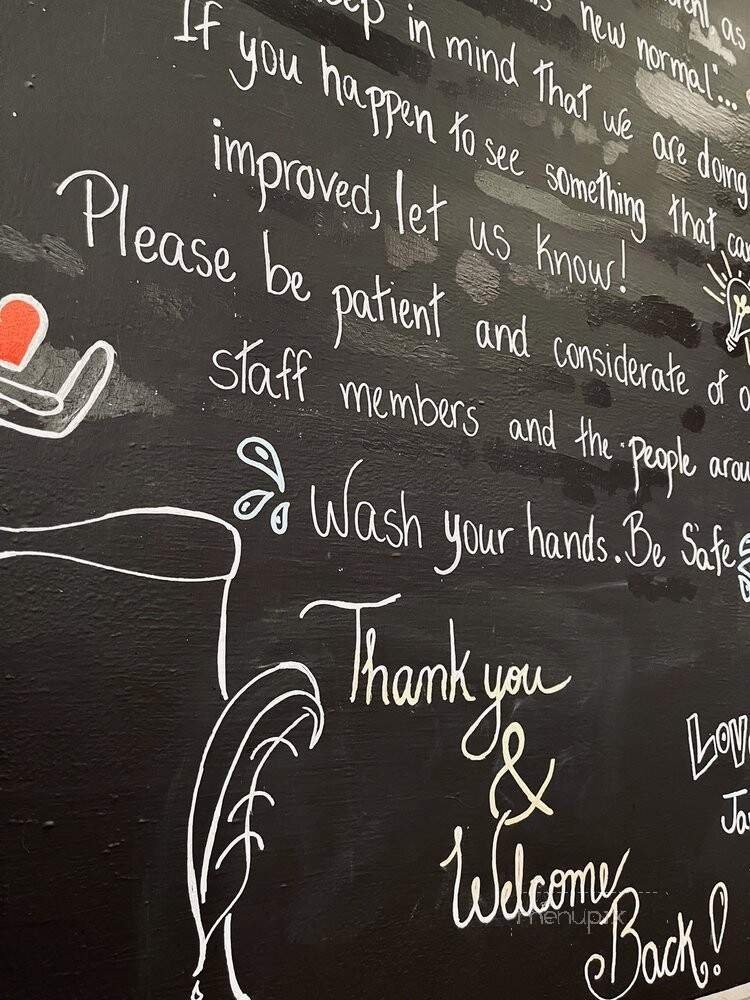 new normal"...
in mind that we are doing
If you happen to see something that
improved, let us know!
Please be patient and considerate of
staff members and the people
Wash your hands. Be Safe
Thank you
&
Welcome
Back!
menupix